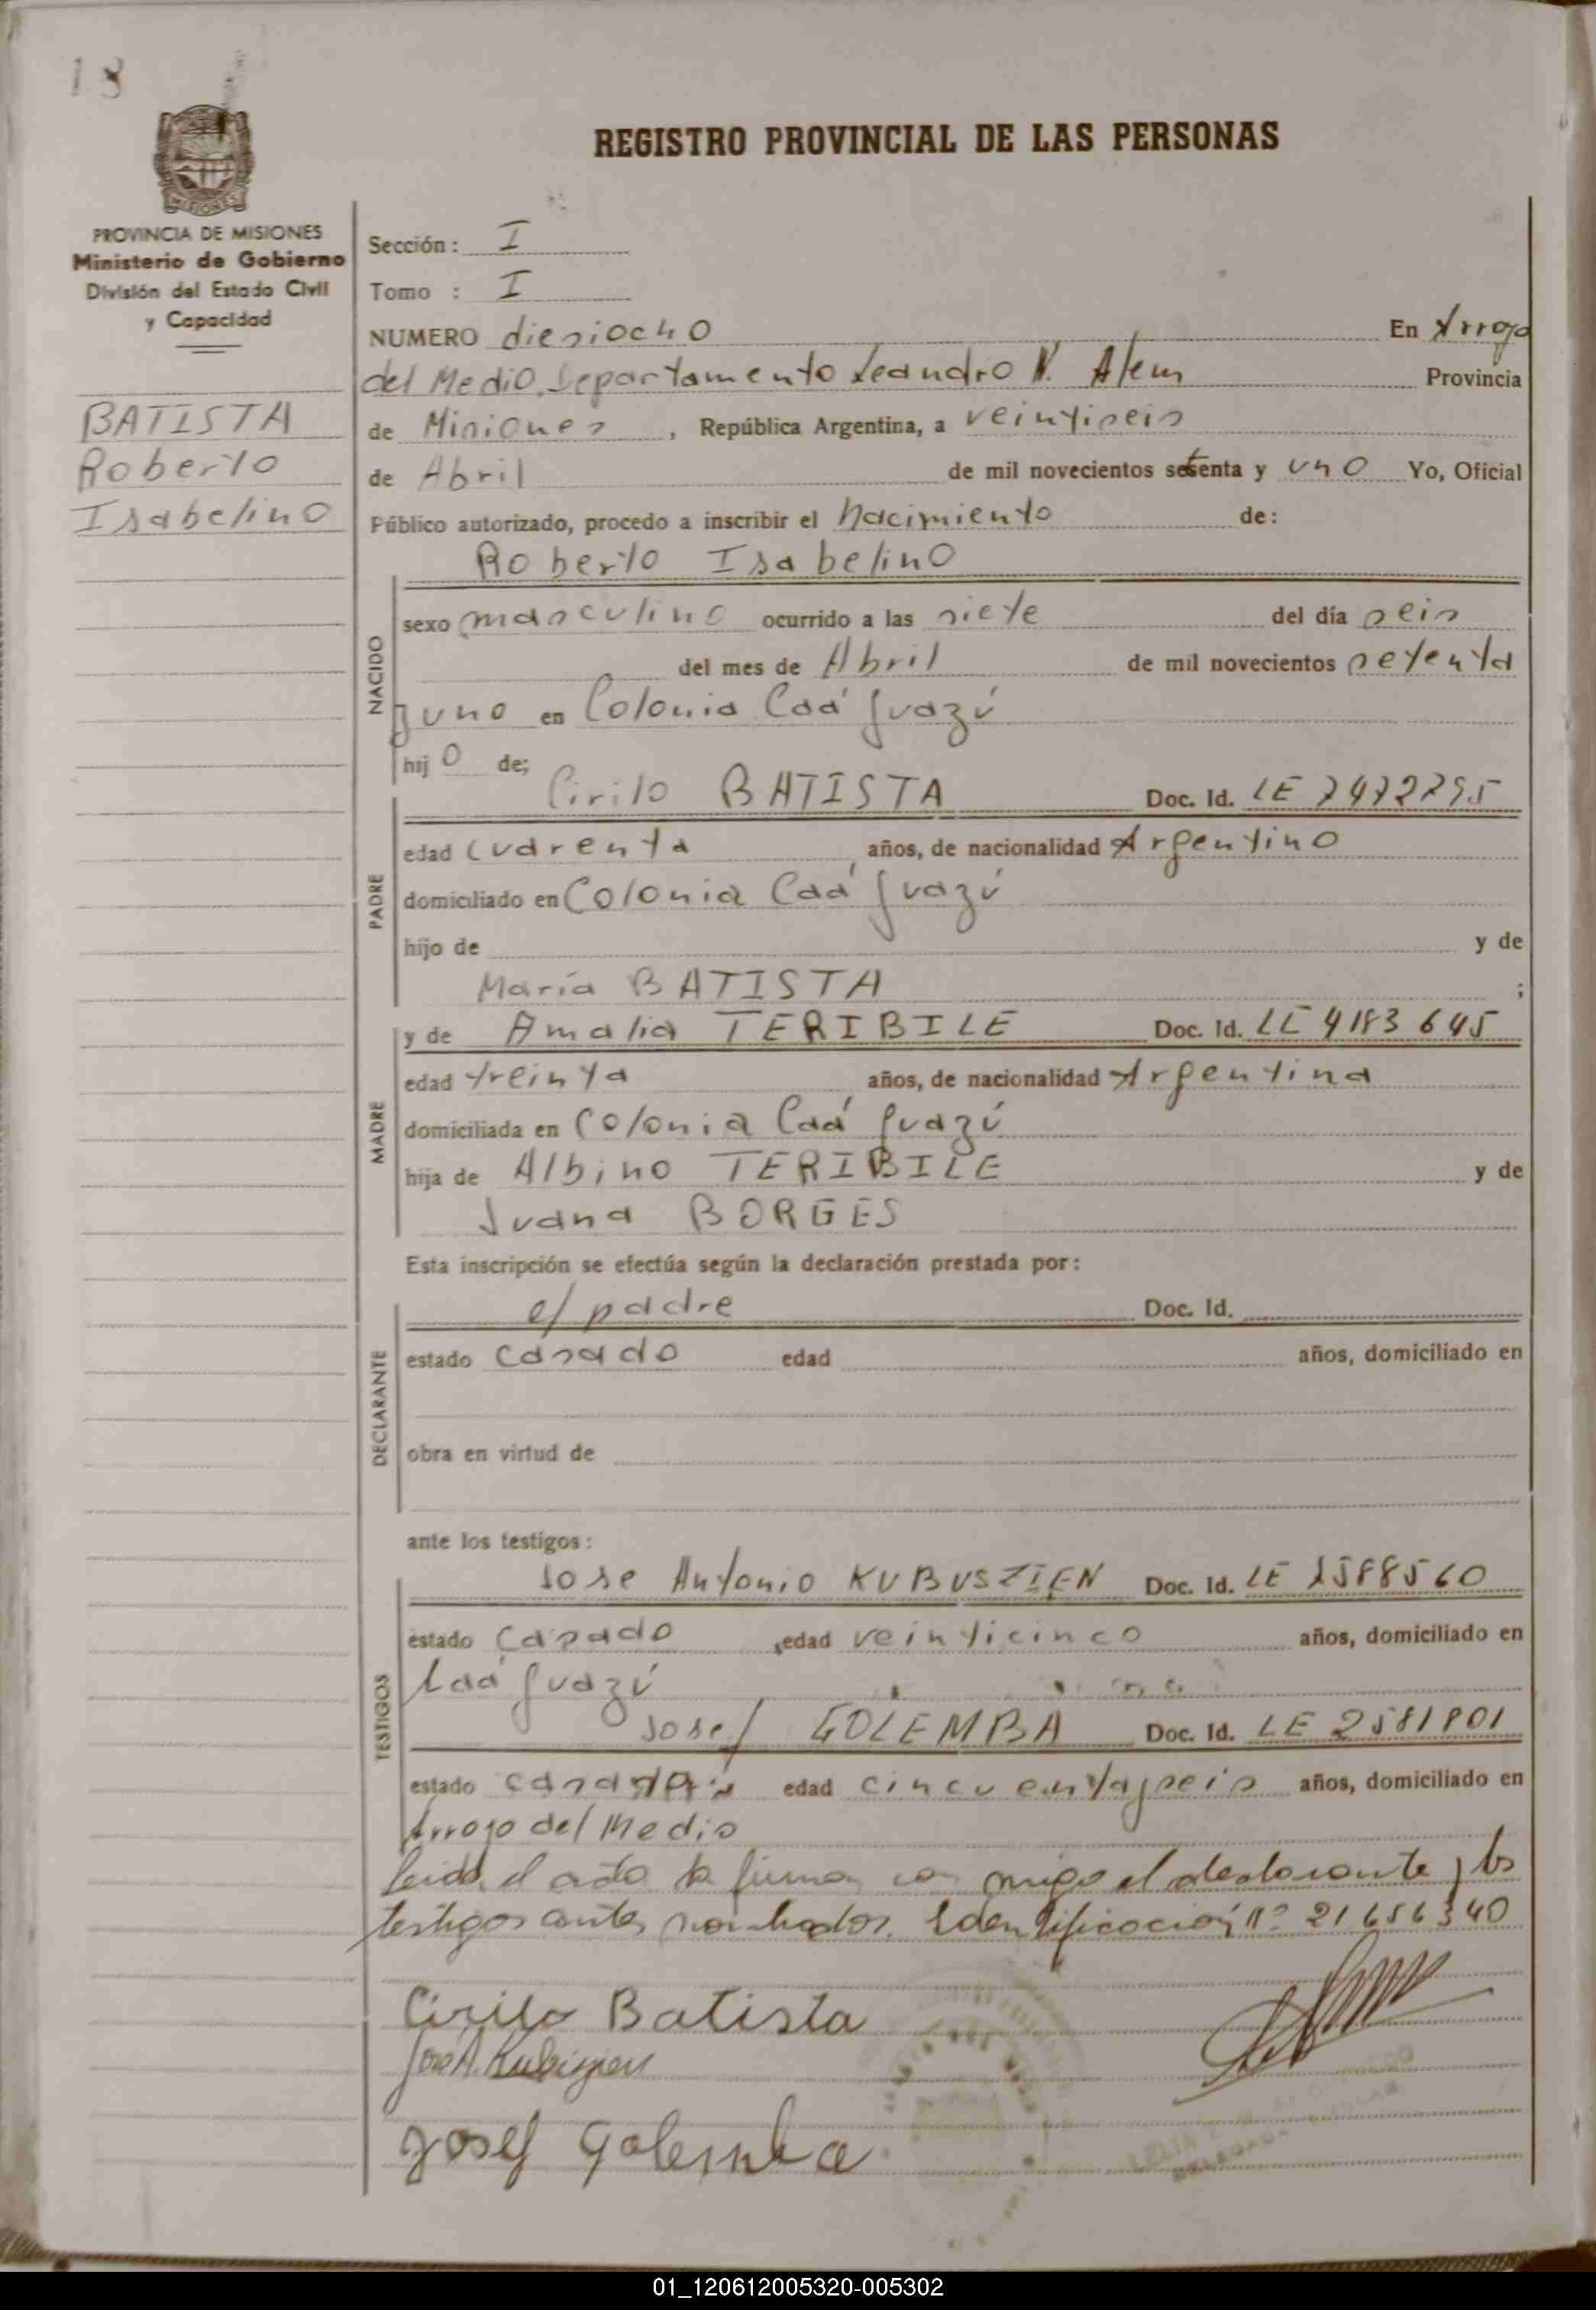 18
REGISTRO PROVINCIAL DE LAS PERSONAS
PROVINCIA DE MISIONES
Ministerio de Gobierno
División del Estado Civil
y Capacidad
BATISTA
Roberto
Isabelino
Sección : I
Tomo : I
NUMERO diesiocho En Arroyo
del Medio, Departamento Leandro N. Alem Provincia
de Misiones , República Argentina, a veintiseis
de Abril de mil novecientos setenta y uno Yo, Oficial
Público autorizado, procedo a inscribir el Nacimiento de:
Roberto Isabelino
NACIDO
sexo masculino ocurrido a las siete del día seis
del mes de Abril de mil novecientos setenta
y uno en Colonia Caá Guazú
hijo de;
PADRE
Cirilo BATISTA Doc. Id. LE 7472795
edad cuarenta años, de nacionalidad Argentino
domiciliado en Colonia Caá Guazú
hijo de y de
María BATISTA ;
MADRE
y de Amalia TERIBILE Doc. Id. LE 4183645
edad treinta años, de nacionalidad Argentina
domiciliada en Colonia Caá Guazú
hija de Albino TERIBILE y de
Juana BORGES
Esta inscripción se efectúa según la declaración prestada por :
DECLARANTE
el padre Doc. Id.
estado casado edad años, domiciliado en
obra en virtud de
ante los testigos :
TESTIGOS
Jose Antonio KUBUSZIEN Doc. Id. LE
estado casado edad veinticinco años, domiciliado en
Caá Guazú
Josef GOLEMBA Doc. Id. LE 2581801
estado edad cincuentayseis años, domiciliado en
Arroyo del Medio
Leida el acta la firman con migo el declarante y los
testigos antes nombrados. Identificación nº 21656340
Cirilo Batista
José A. Kubiszien
Josef Golemba
DELEGADA
01_120612005320-005302